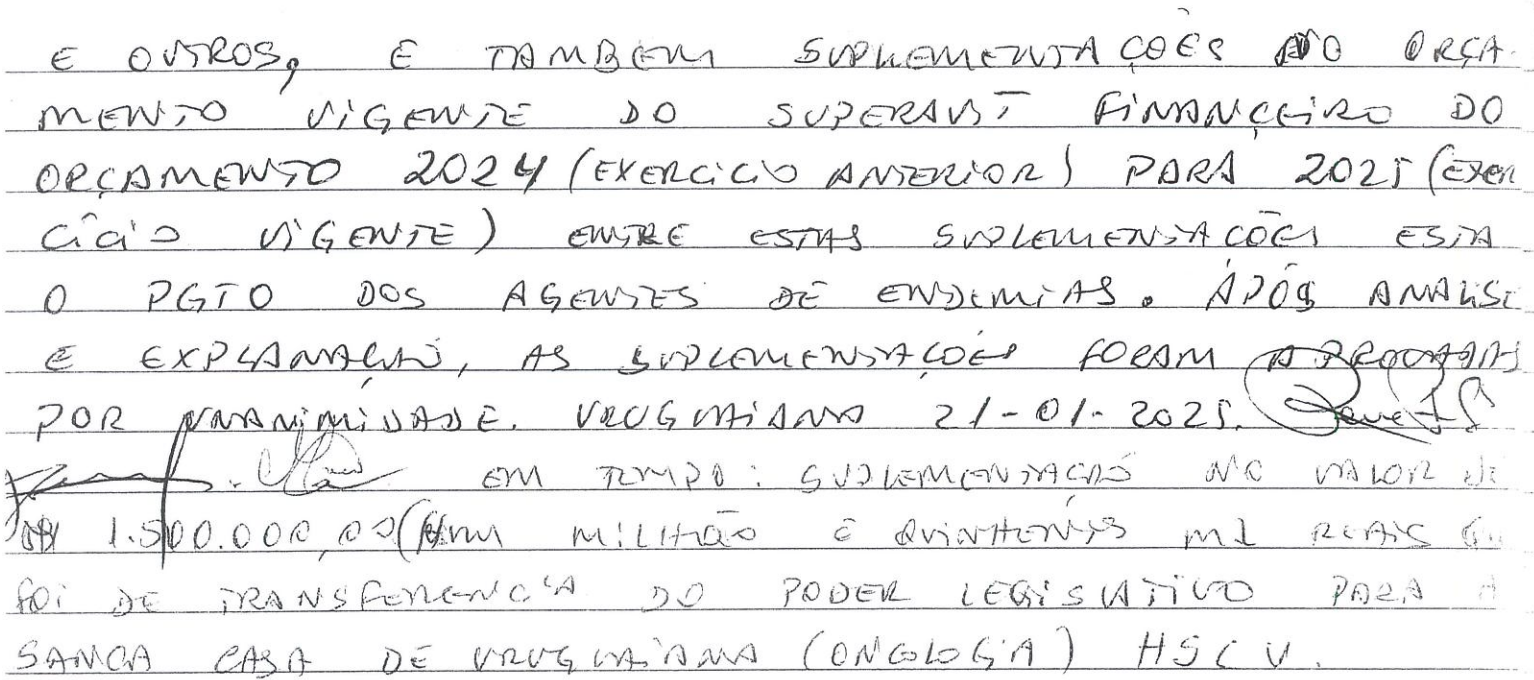 E OUTROS, E TAMBEM SUPLEMENTAÇÕES NO ORÇA-
MENTO VIGENTE DO SUPERAVIT FINANCEIRO DO
ORÇAMENTO 2024 (EXERCICIO ANTERIOR) PARA 2025 (EXER
CÍCIO VIGENTE) ENTRE ESTAS SUPLEMENTAÇÕES ESTA
O PGTO DOS AGENTES DE ENDEMIAS. APÓS ANALISE
E EXPLANAÇÃO, AS SUPLEMENTAÇÕES FORAM APROVADAS
POR UNANIMIDADE. URUGUAIANA 21-01-2025.
EM TEMPO: SUPLEMENTAÇÃO NO VALOR DE
R$ 1.500.000,00 (Hum MILHÃO E QUINHENTOS MIL REAIS
FOI DE TRANSFERENCIA DO PODER LEGISLATIVO PARA A
SANTA CASA DE URUGUAIANA (ONCOLOGIA) HSCU.